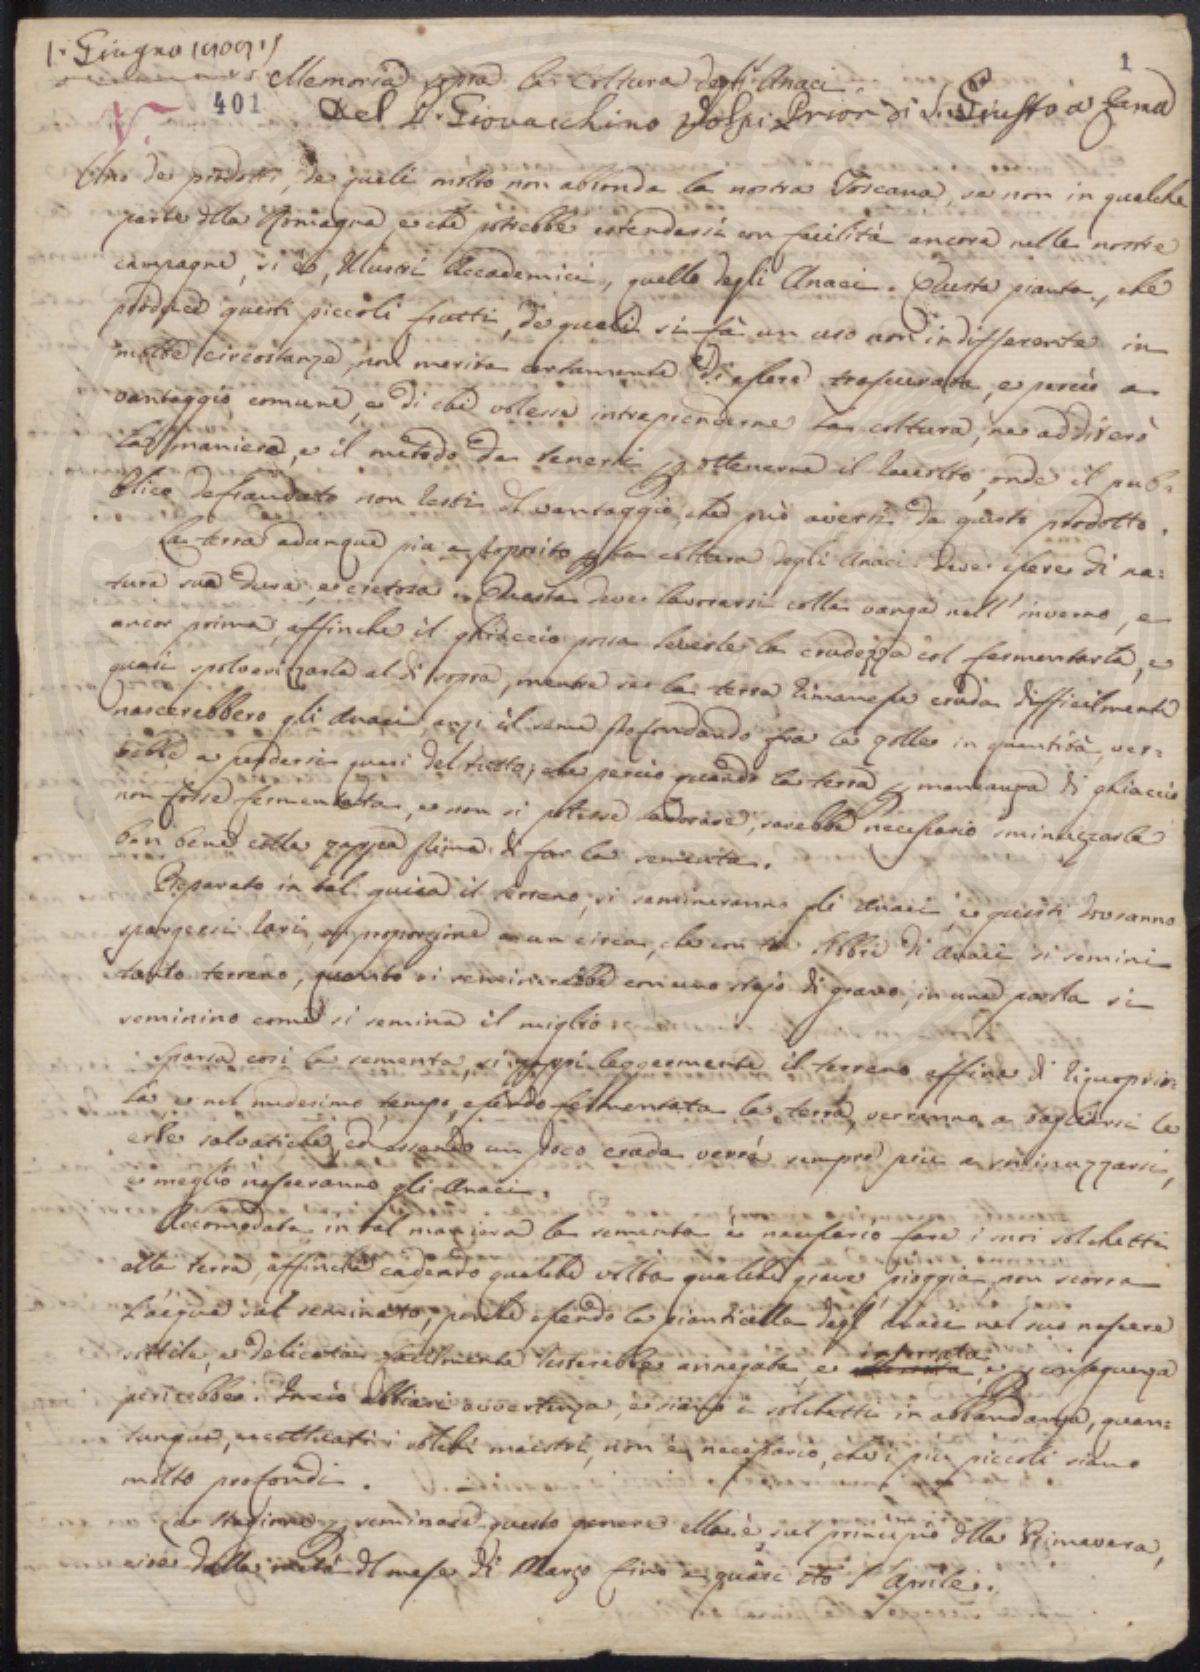 1. Giugno
1
Memoria sopra la Coltura degli Anaci.
401
Del Giovacchino Volpi Prior di S. Giusto a
Uno de prodotti, de quali molto non abbonda la nostra Toscana, se non in qualche
parte dlla Romagna, e che potrebbe estendersi con facilità ancora nelle nostre
campagne, si è, Illustri Accademici, quello degli Anaci. Questa pianta, che
produce questi piccoli frutti, de quali si fà un uso non indifferente in
molte circostanze, non merita certamente di essere trascurata, e perciò a
vantaggio comune, e di chi volesse intraprenderne la coltura, ne additerò
la maniera, e il metodo da tenersi p ottenerne il raccolto, onde il pub-
blico defraudato non resti dl vantaggio, che può aversi da questo prodotto.
La terra adunque più a proposito p la coltura degli Anaci deve essere di na=
tura sua dura, e cretosa. Questa deve lavorarsi colla vanga nell' inverno, e
ancor prima, affinche il ghiaccio possa levarle la crudezza col fermentarla, e
quasi spolverizzarla al di sopra, mentre se la terra rimanesse cruda difficilmente
nascerebbero gli Anaci, anzi il seme profondando fra le zolle in quantità, ver=
rebbe a perdersi quasi del tutto; che perciò quando la terra p mancanza di ghiaccio
non fosse fermentata, e non si potesse lavorare, sarebbe necessario sminuzzarla
ben bene colla zappa prima di far la sementa.
Preparato in tal guisa il terreno, si semineranno gli Anaci, e questi dovranno
spargersi rari, a proporzione circa, che con tre libbre di Anaci si semini
tanto terreno, quanto si seminerebbe con uno stajo di grano, in una parola si
seminino come si semina il miglio.
Sparsa così la sementa, si zappi leggermente il terreno affine di ricuoprir=
la, e nel medesimo tempo, essendo fermentata la terra, verranno a tagliarsi le
erbe salvatiche, ed essendo un poco cruda verrà sempre più a sminuzzarsi,
e meglio nasceranno gli Anaci.
Accomodata in tal maniera la sementa è necessario fare i suoi solchetti
alla terra, affinche cadendo qualche volta qualche grave pioggia, non scorra
l'acqua sul seminato, perche essendo la pianticella degl' Anaci nel suo nascere
sottile, e delicata facilmente resterebbe annegata, e interrata, e p conseguenza
perirebbe. Perciò abbiasi avvertenza, e siano i solchetti in abbondanza, quan=
tunque, eccettuati i solchi maestri, non è necessario, che i più piccoli siano
molto profondi.
La stagione p seminare questo genere ella è sul principio dlla Primavera,
cioè dalla metà dl mese di Marzo fino a quasi tto l'Aprile.